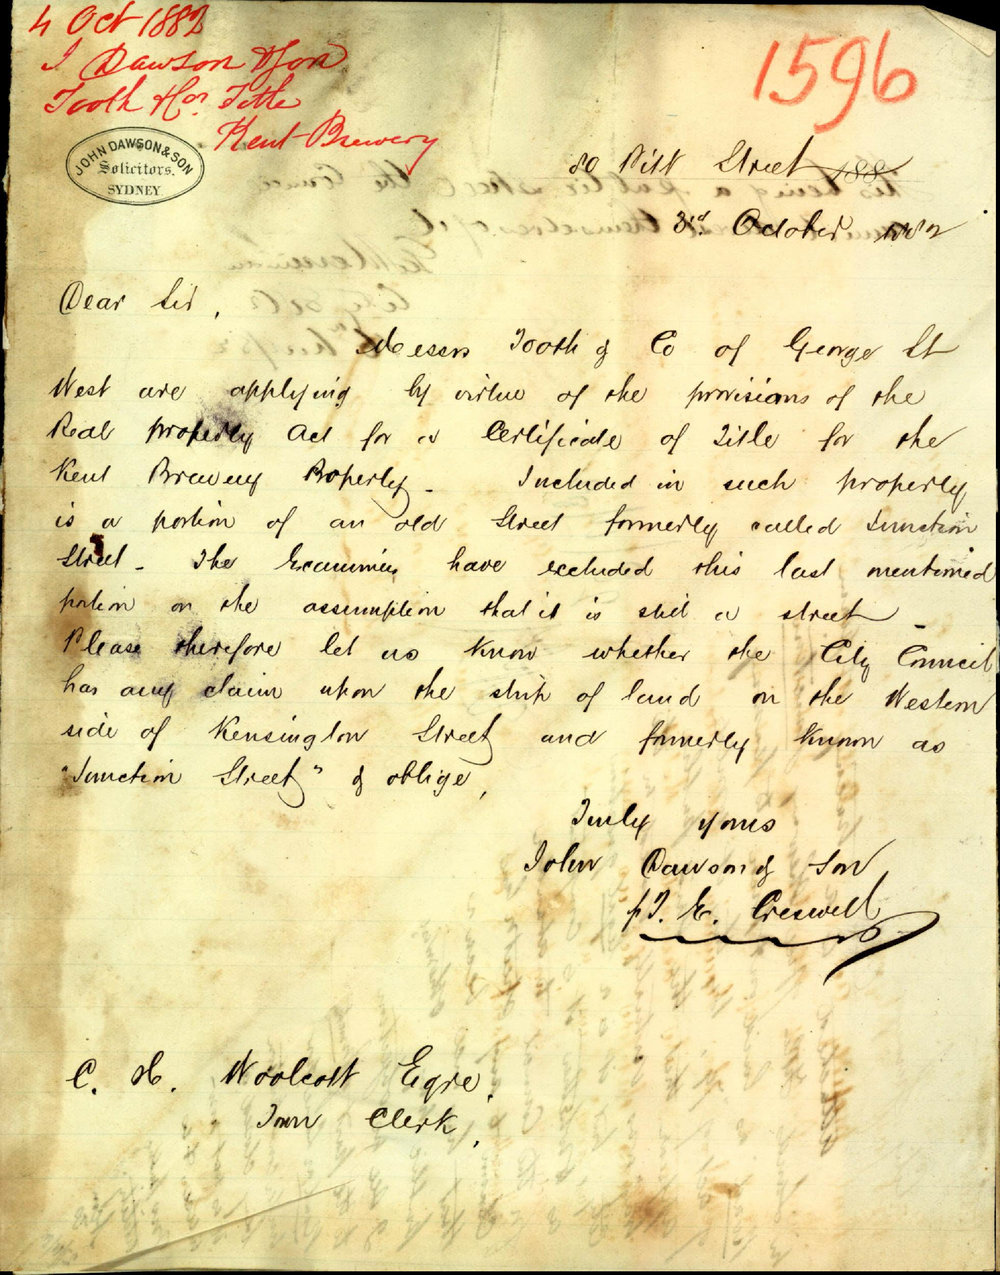 4 Oct 1882
J Dawson & Son
Tooth & Co Title
Kent Brewery
1596
JOHN DAWSON & SON
Solicitors.
SYDNEY
80 Pitt Street 188
3rd October 1882
Dear Sir,
Messrs Tooth & Co of George St
West are applying by virtue of the provisions of the
Real property Act for a Certificate of Title for the
Kent Brewery Property - Included in such property
is a portion of an old Street formerly called Junction
Street - The Examiners have excluded this last mentioned
portion on the assumption that it is still a street -
Please therefore let us know whether the City Council
has any claim upon the strip of land on the Western
side of Kensington Street and formerly known as
"Junction Street" & oblige,
Truly yours
John Dawson & Son
p J. E. Creswell
C. H. Woolcott Esqre,
Town Clerk,